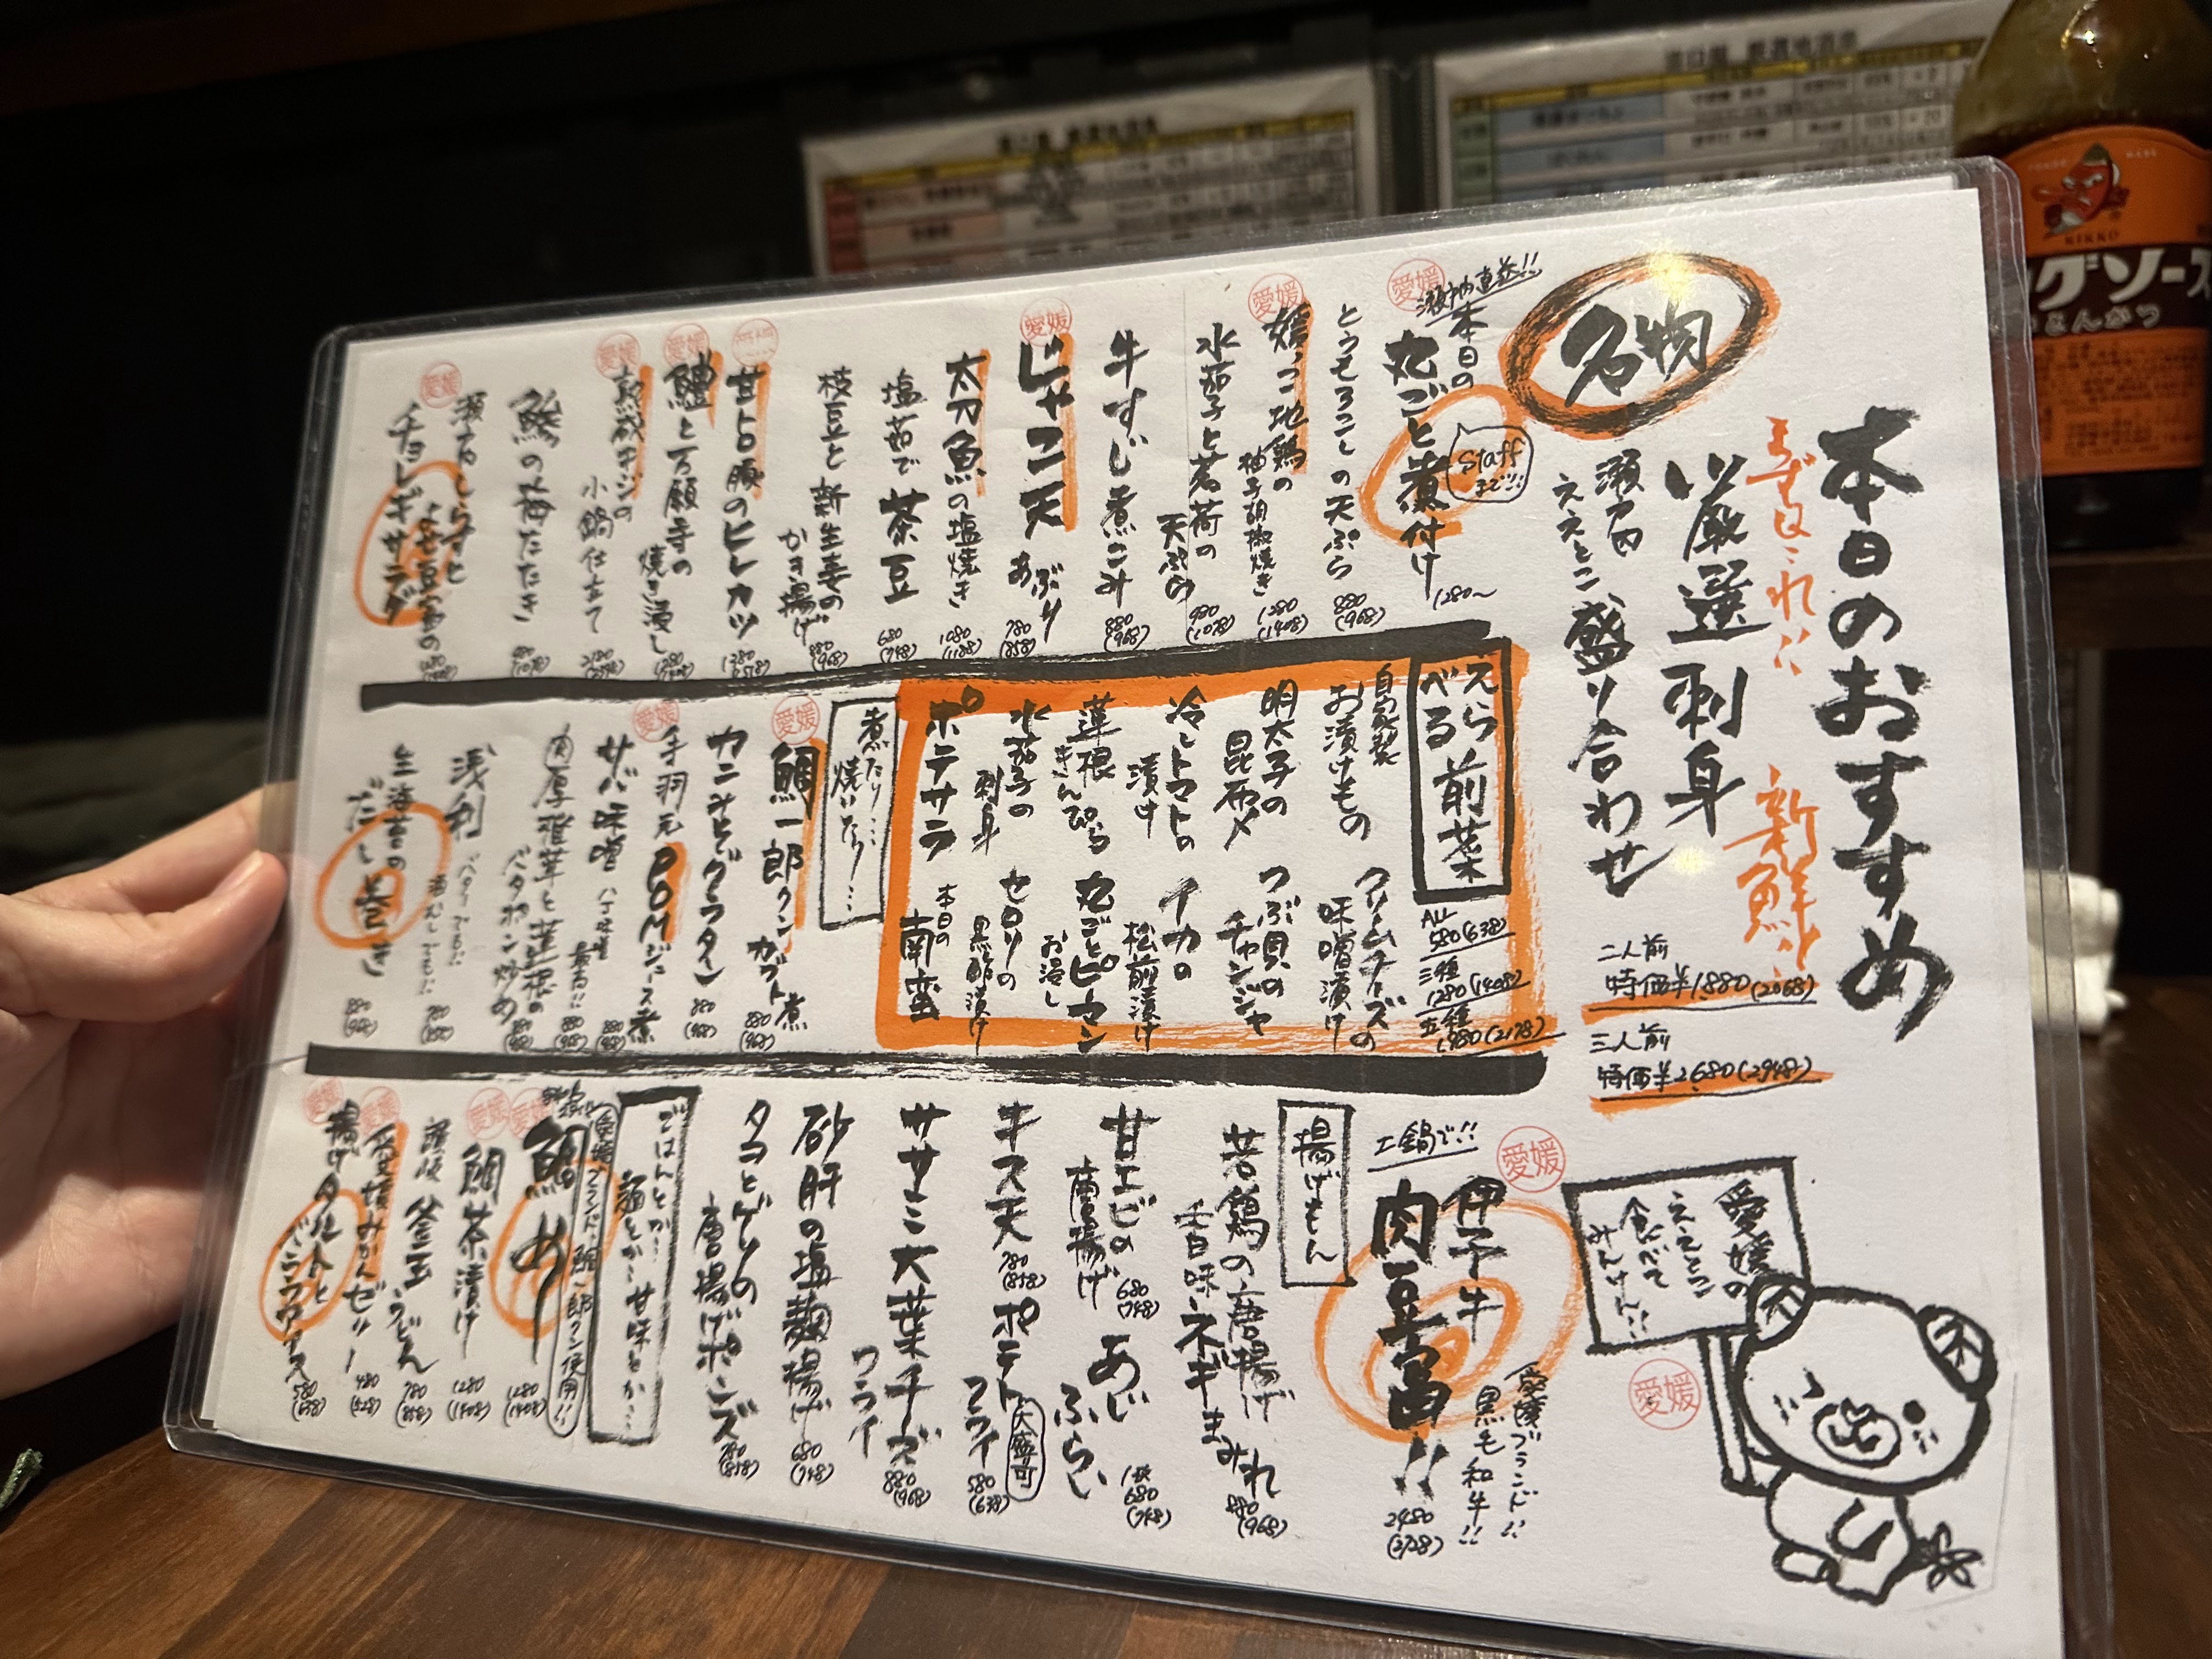 本日のおすすめ
まずはこれ!!
新鮮!!
名物
厳選刺身
瀬戸内
ええとこ盛り合わせ
二人前
特価¥1,880(2068)
三人前
特価¥2,680(2948)
愛媛の
ええとこ
食べて
みんけん!!
愛媛
愛媛
瀬戸内直送!!
本日の
丸ごと煮付け
Staffまで!!
1280~
とうもろこしの天ぷら
880(968)
愛媛
媛っこ地鶏の
柚子胡椒焼き
1280(1408)
水茄子と茗荷の
天ぷら
980(1078)
牛すじ煮こみ
880(968)
愛媛
じゃこ天
あぶり
780(858)
太刀魚の塩焼き
1080(1188)
塩茹で茶豆
680(748)
枝豆と新生姜の
かき揚げ
880(968)
愛媛
甘トロ豚のヒレカツ
愛媛
鱧と万願寺の
焼き浸し
愛媛
熟成キジの
小鍋仕立て
の梅たたき
愛媛
瀬戸内しらすと
よせ豆富の
チョレギサラダ
えらべる前菜
ALL
580(638)
三種
1280(1408)
五種
1980(2178)
自家製
お漬けもの
クリームチーズの
味噌漬け
明太子の
昆布〆
つぶ貝の
チャンジャ
冷しトマトの
漬け
イカの
松前漬け
蓮根
きんぴら
丸ごとピーマン
お浸し
水茄子の
刺身
セロリの
黒酢漬け
ポテサラ
本日の
南蛮
煮たり…
焼いたり…
愛媛
鯛一郎クン
カブト煮
880(968)
カニみそグラタン
愛媛
手羽元POMジュース煮
サバ味噌
八丁味噌
最高!!
肉厚椎茸と蓮根の
バタポン炒め
浅利
バターでも!!
酒むしでも!!
生海苔の
だし巻き
土鍋で!!
愛媛
伊予牛
肉豆富!!
愛媛ブランド!!
黒毛和牛!!
2480(2728)
揚げもん
若鶏の唐揚げ
ネギまみれ
880(968)
甘エビの
唐揚げ
680(748)
あじ
ふらい
1枚
680(748)
キス天
780(858)
ポテト
フライ
大盛可
580(638)
ササミ大葉チーズ
フライ
880(968)
砂肝の塩麹揚げ
680(748)
タコとゲソの
唐揚げポンズ
780(858)
ごはんとか…
麺とか…甘味とか…
愛媛
鯛めし
愛媛ブランド、鯛一郎クン使用!!
1280(1408)
愛媛
鯛茶漬け
1280(1408)
讃岐
釜玉うどん
780(858)
愛媛
愛媛みかんゼリー
480(528)
愛媛
揚げタルトと
バニラアイス
580(638)
KIKKO
グソース
とんかつ